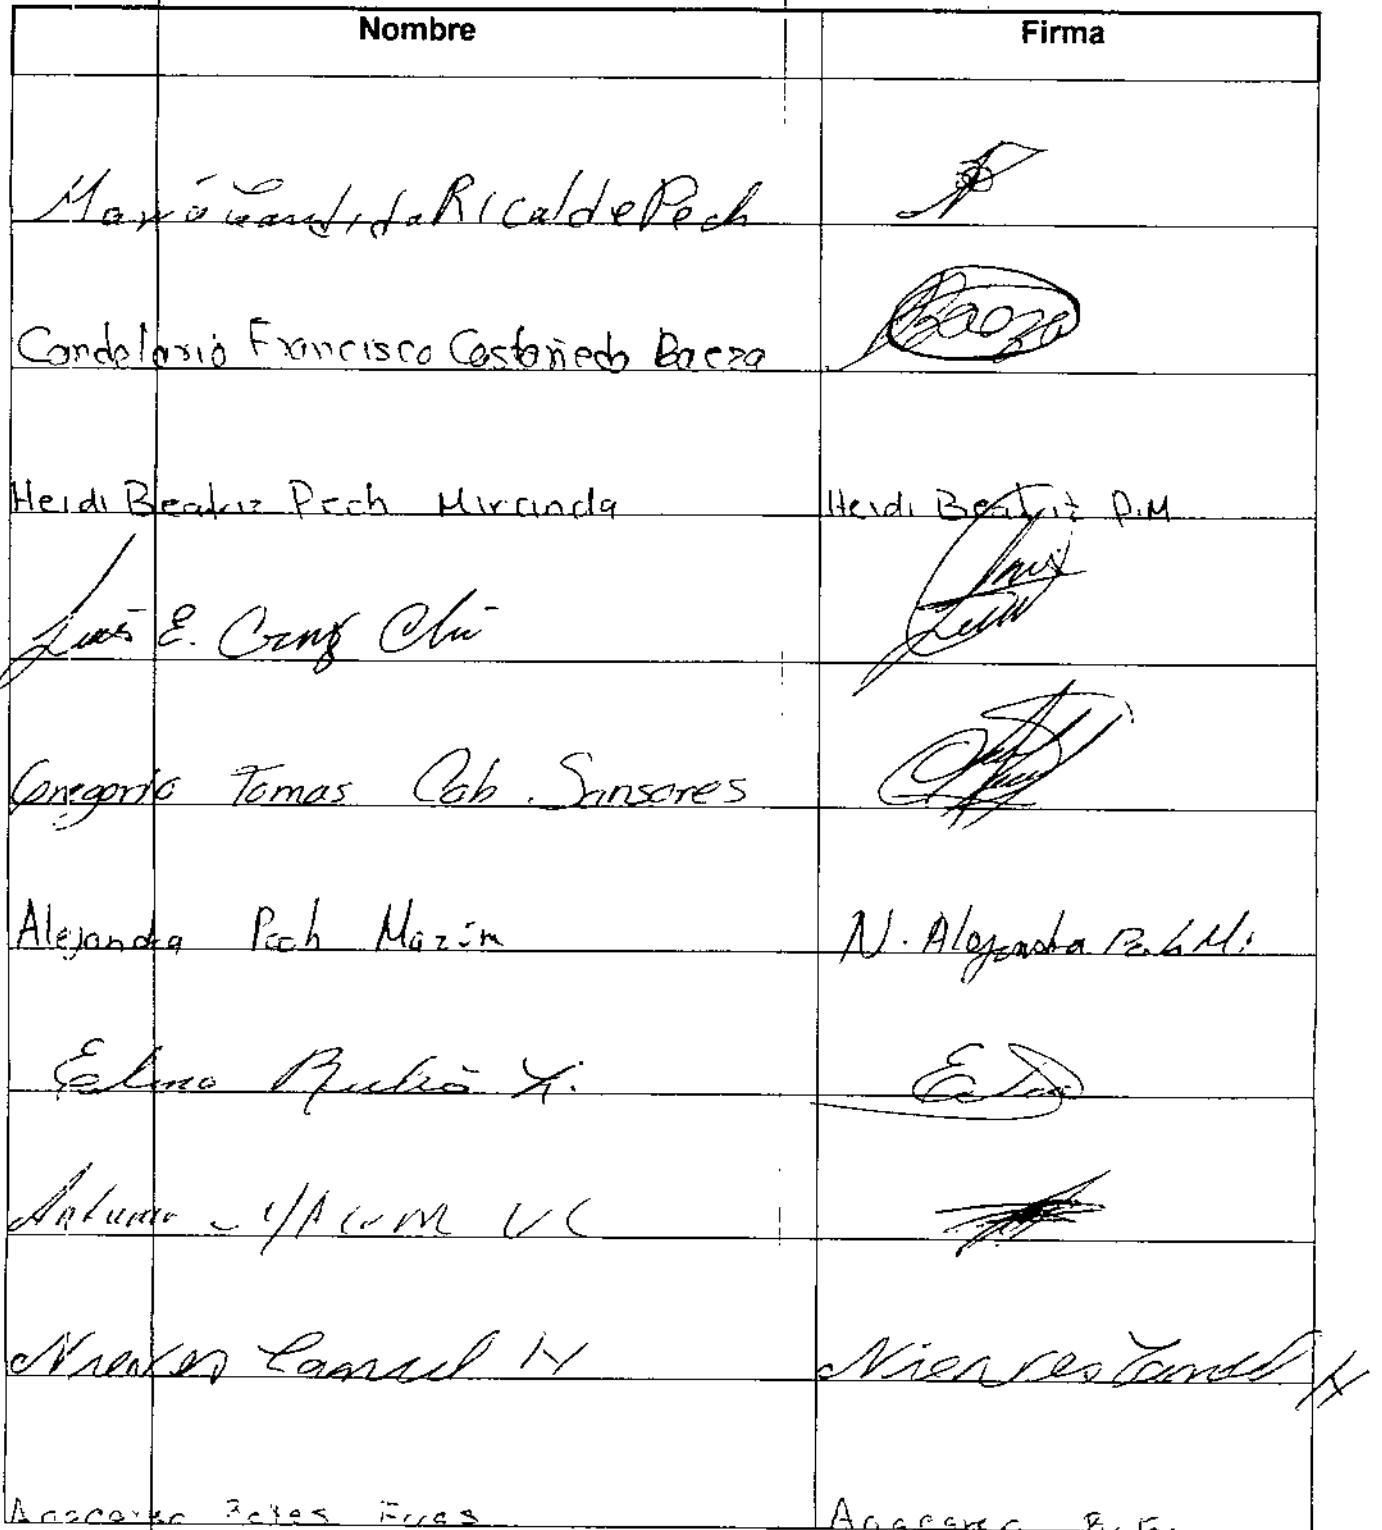 Nombre Firma
Maria Candida Ricalde Pech
Candelario Francisco Castañeda Baeza Baeza
Heidi Beatriz Pech Miranda Heidi Beatriz P.M
Luis E. Cruz Chi
Gregorio Tomas Cob Sansores
Alejandra Pech Mazún N. Alejandra
Elmo Rubio
Antonio UC
Nieves Canul H Nieves Canul H